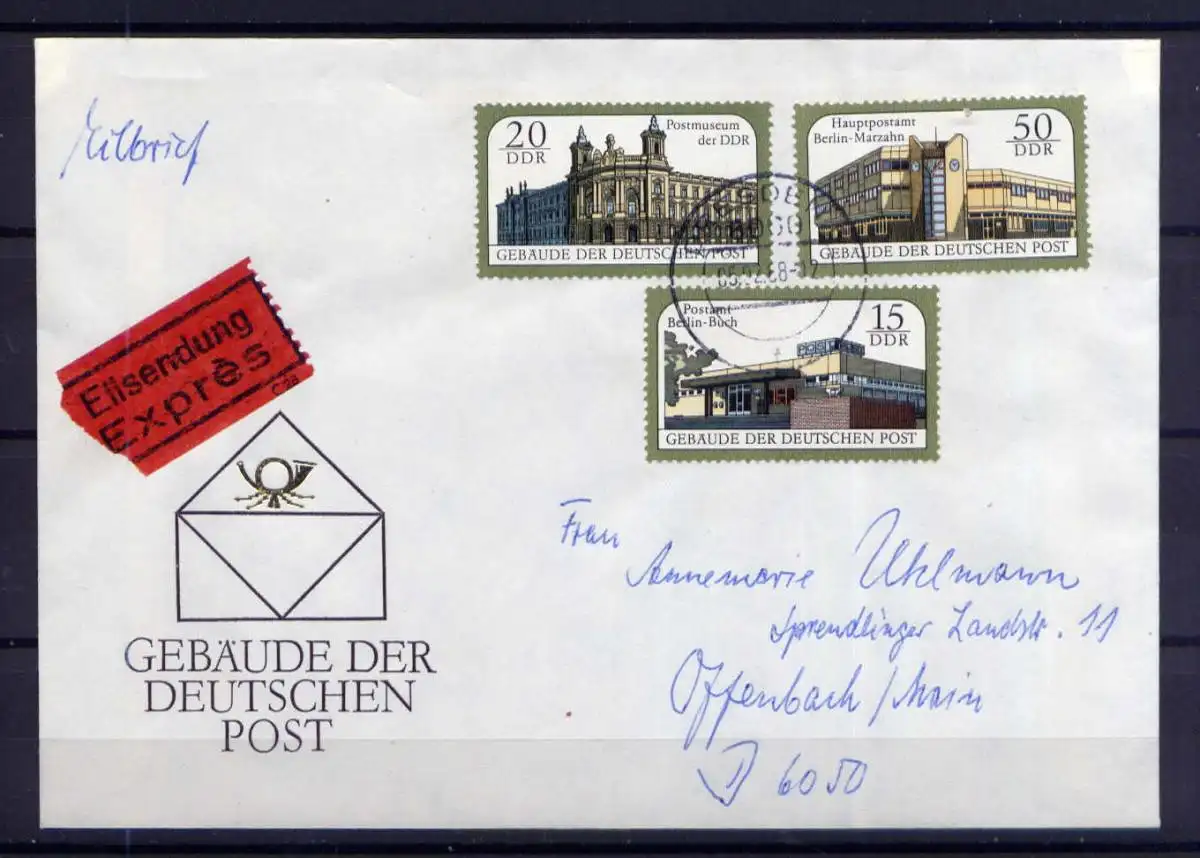 Eilbrief
20
DDR
Postmuseum
der DDR
GEBÄUDE DER DEUTSCHEN POST
Hauptpostamt
Berlin-Marzahn
50
DDR
GEBÄUDE DER DEUTSCHEN POST
Postamt
Berlin-Buch
15
DDR
POST
GEBÄUDE DER DEUTSCHEN POST
Eilsendung
Exprès
GEBÄUDE DER
DEUTSCHEN
POST
Frau
Annemarie Uhlmann
Sprendlinger Landstr. 11
Offenbach/Main
D 6050